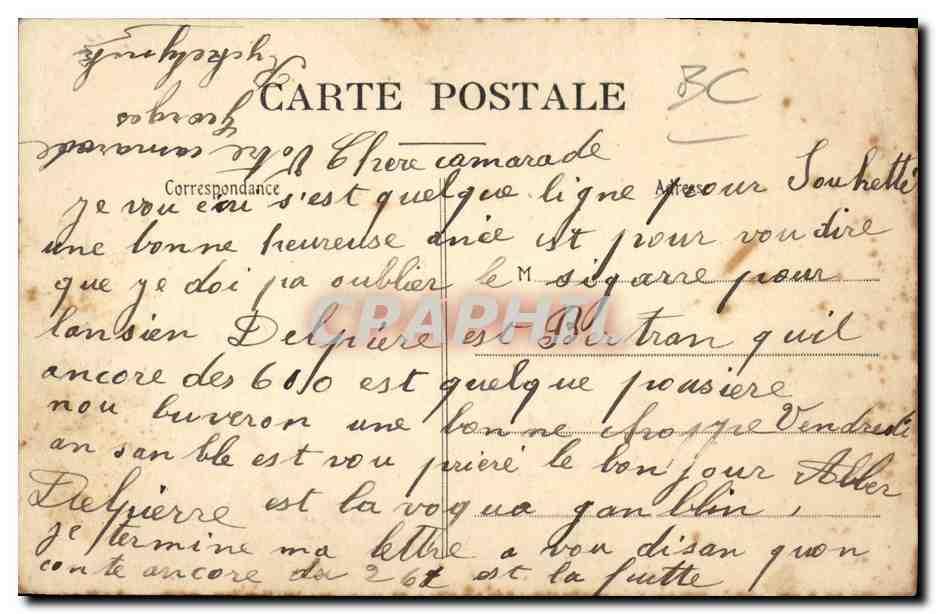 CARTE POSTALE
BC
Chere camarade
Correspondance
Adresse
je vou s'est quelque ligne pour Souhetté
une bonne heureuse anée est pour vou dire
que je doi pa oublier le M sigarre pour
CPAPHIL
lansien Delpière est Bertran quil
ancore des 600 est quelque pousiere
nou buveron une bonne choppe Vendredi
an sanble est vou prieré le bonjour Alber
Delpierre est la voqua ganblin,
je termine ma lettre a vou disan quon
conte ancore du 26 est la fuitte
Votre camarade
Georges